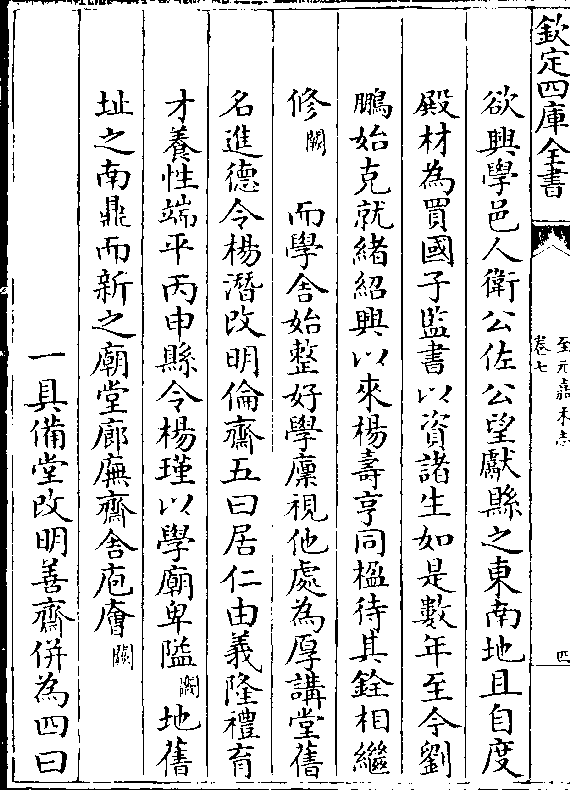 欽定四庫全書
至元嘉禾志
卷七
四
欲興學邑人衛公佐公望獻縣之東南地且自度
殿材為買國子監書以資諸生如是數年至令劉
鵬始克就緒紹興以來楊壽亨同楹待其銓相繼
修闕 而學舍始整好學廩視他處為厚講堂舊
名進德令楊潛改明倫齋五曰居仁由義隆禮育
才養性端平丙申縣令楊瑾以學廟卑隘闕地舊
址之南鼎而新之廟堂廊廡齋舍庖廥闕
一具備堂改明善齋併為四曰